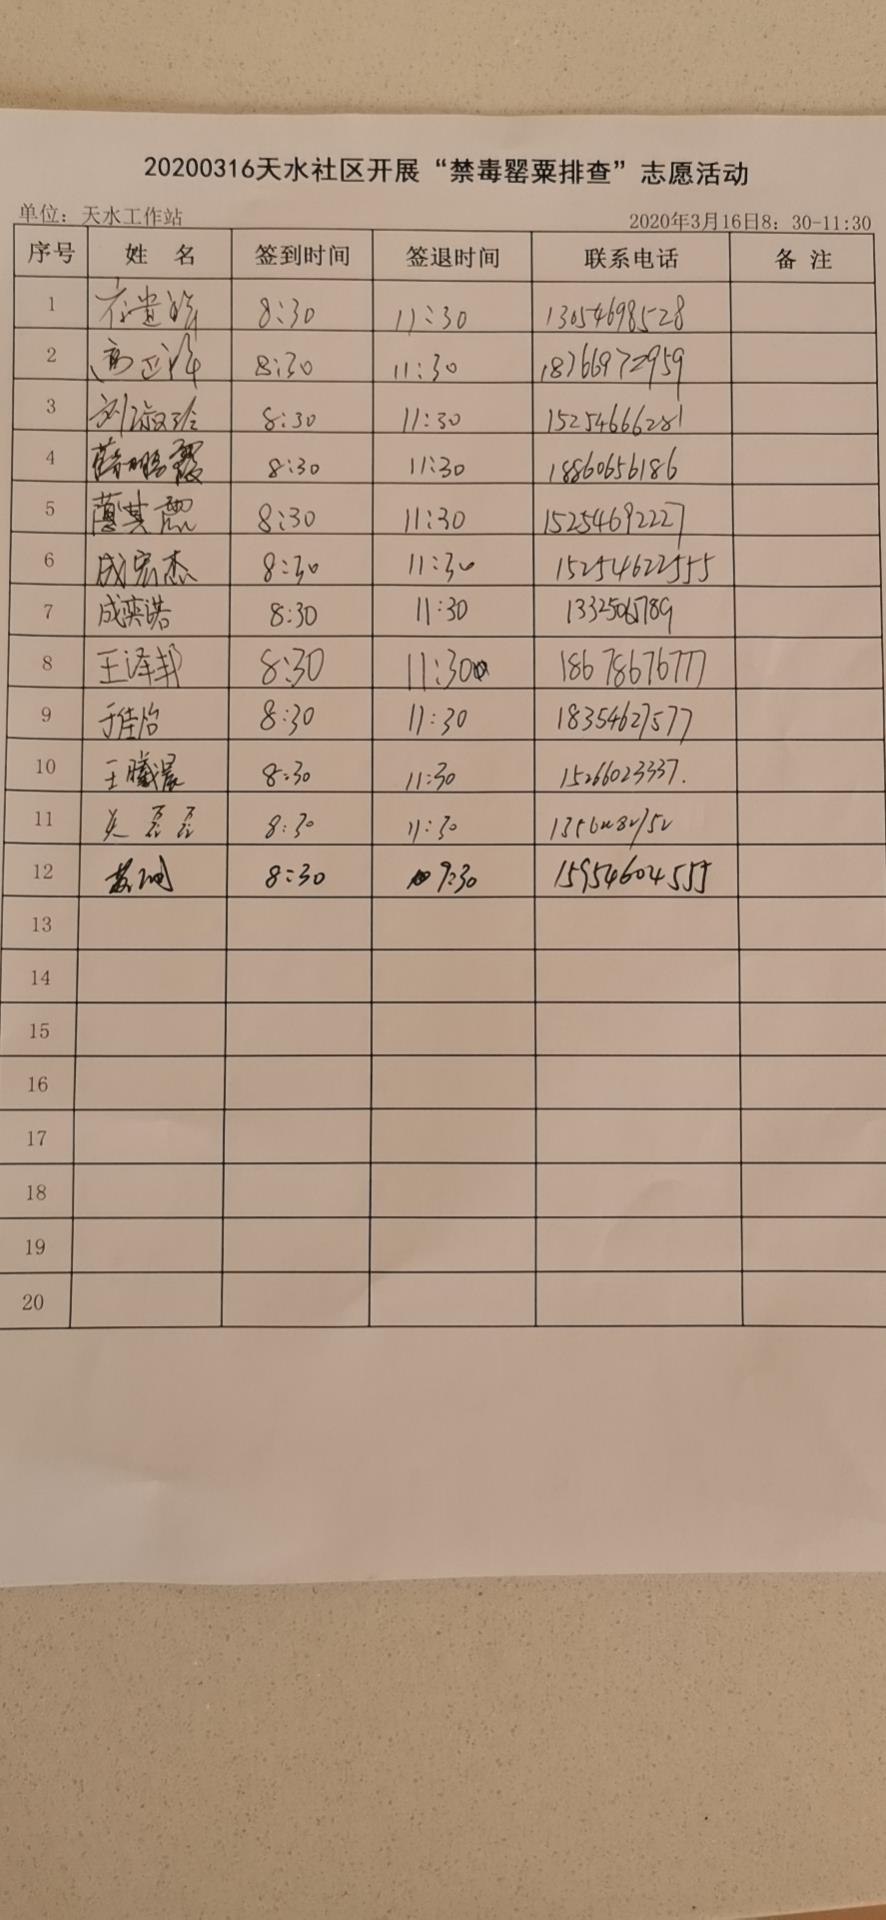 20200316天水社区开展“禁毒罂粟排查”志愿活动
单位：天水工作站 2020年3月16日8：30-11:30
序号 姓 名 签到时间 签退时间 联系电话 备 注
1 8:30 11:30 13054698528
2 8:30 11:30 18766972959
3 刘淑玲 8:30 11:30 15254666281
4 8:30 11:30 18860656186
5 8:30 11:30 15254692227
6 成宏杰 8:30 11:30 15254622555
7 成奕诺 8:30 11:30
8 王泽邦 8:30 11:30 18678676777
9 于佳怡 8:30 11:30 18354627577
10 王曦晨 8:30 11:30 15266023337.
11 磊磊 8:30 11:30
12 8:30 9:30 15954604555
13
14
15
16
17
18
19
20